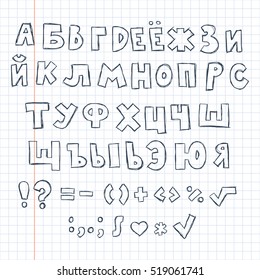 АБВГДЕЁЖЗИ
ЙКЛМНОПРС
ТУФХЦЧШ
ЩЪЫЬЭЮЯ
!?=-()+<>%√
:;,;∫♡*✓
shutterstock.com · 519061741